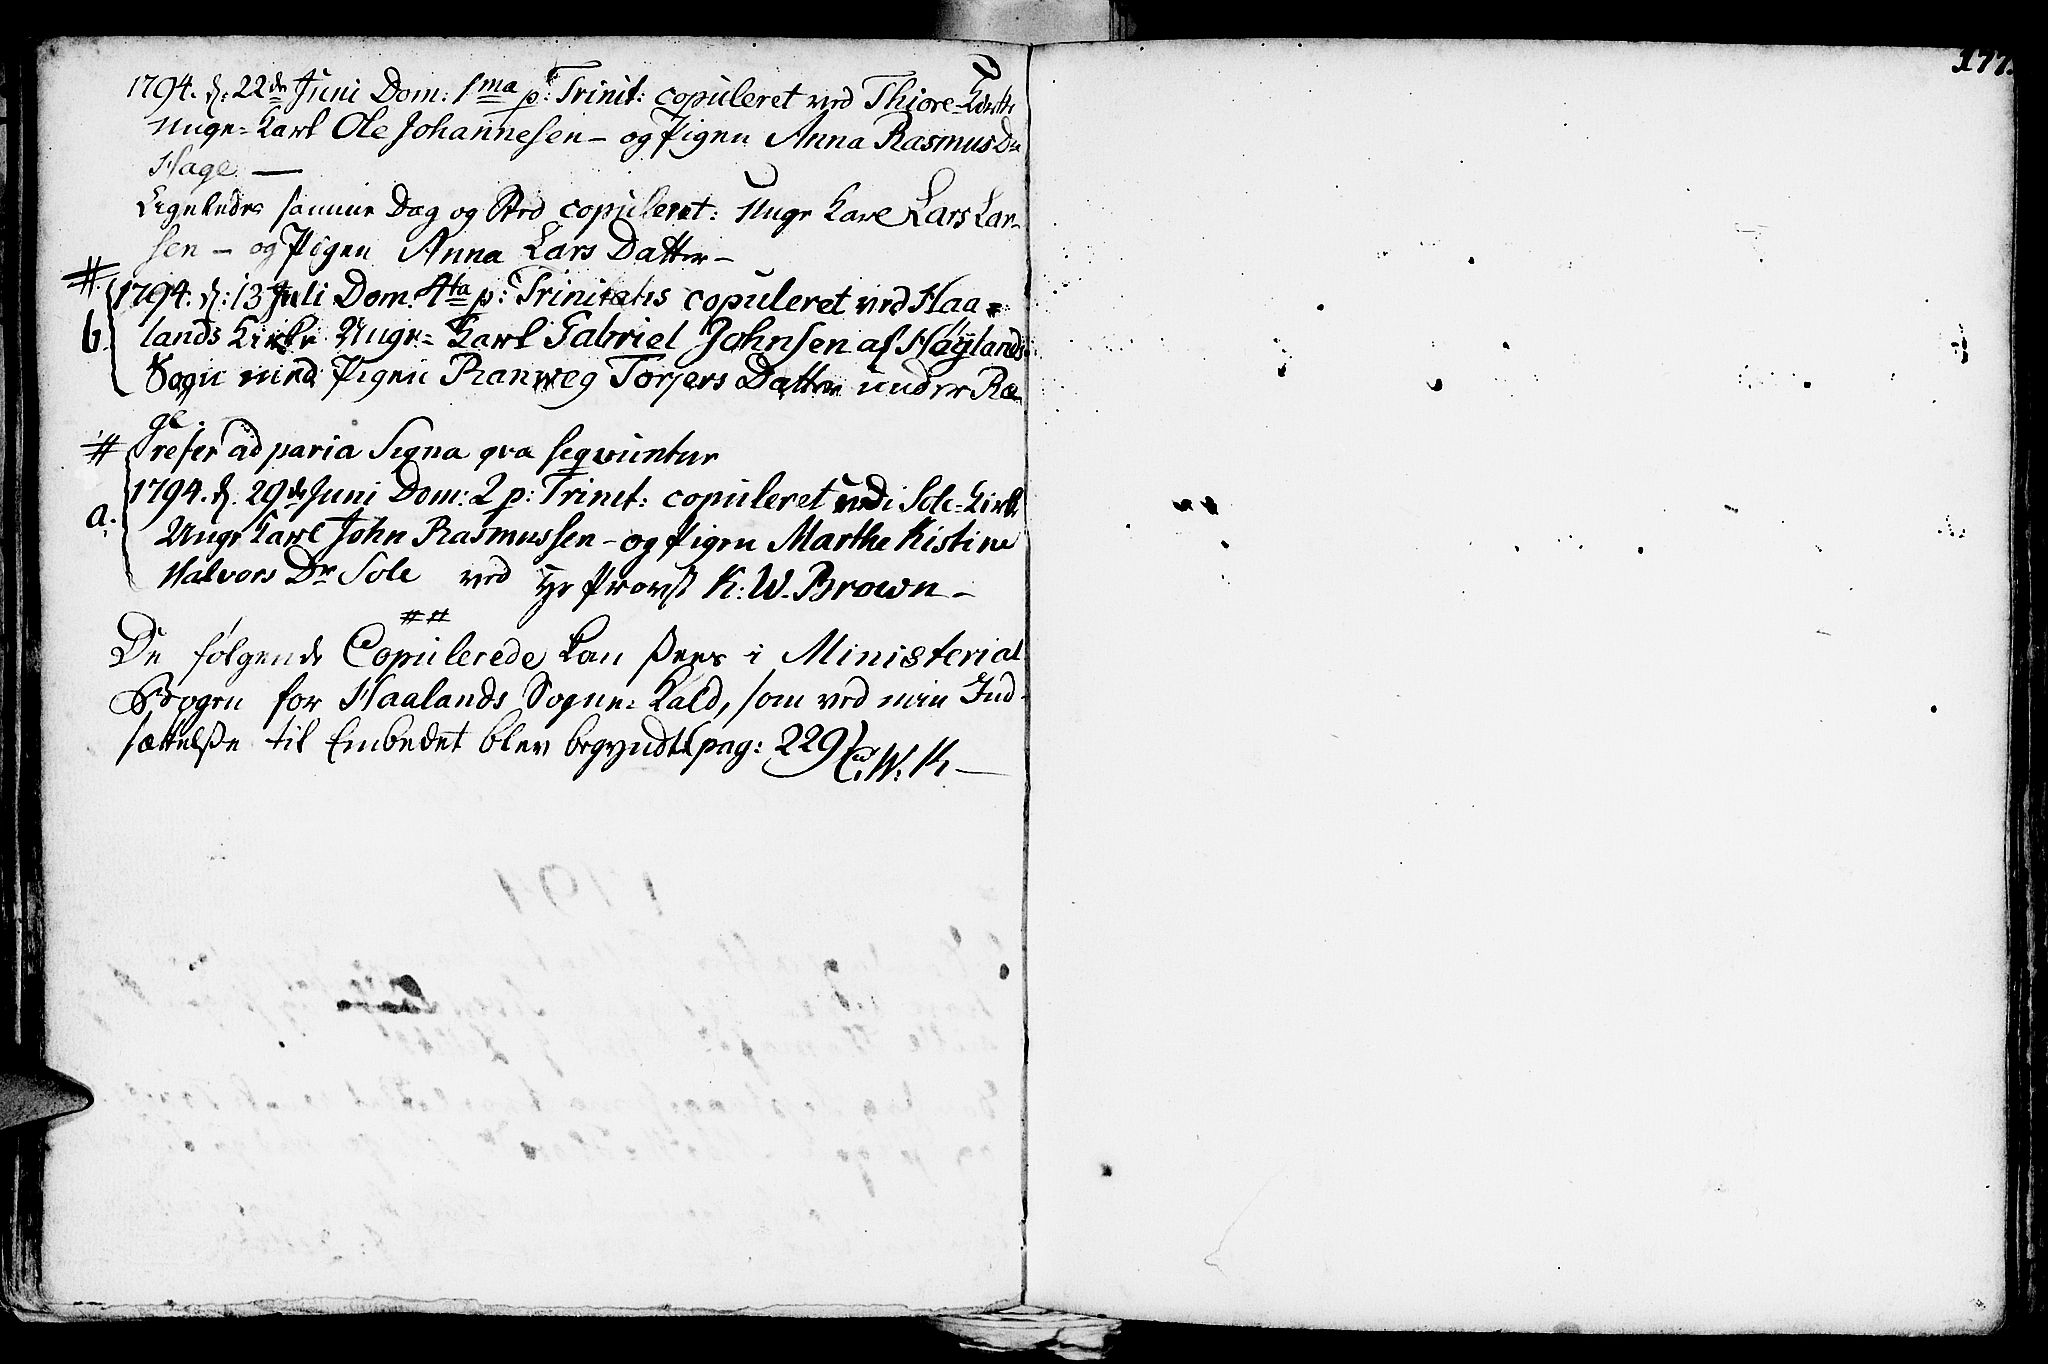 177.
1794. d: 22de Juni Dom: 1ma p: Trinit: copuleret ved Thiore-Kirke
Unge-Karl Ole Johannesen - og Pigen Anna RasmusDr
Hage —
Ligeledes samme Dag og Sted copuleret: Unge Karl Lars Lar-
sen - og Pigen Anna Lars Datter -
# 1794. d: 13 Juli Dom. 4ta p: Trinitatis copuleret ved Haa-
b. lands Kirke Unge- Karl Gabriel Johnsen af Høylands
Sogn med Pigen Ranweg Torjers Datter under Ræ-
ge.
# refer ad paria Signa qva seqvuntur
1794. d. 29de Juni Dom: 2 p: Trinit: copuleret i Sole-Kirke
a. Unge Karl John Rasmussen - og Pigen Marthe Kistine
Halvors Dr Sole ved Hr Provst K: W. Brown -
##
De følgende Copulerede kan sees i Ministerial
Bogen for Haalands Sogne-Kald, som ved min Ind-
sættelse til Embedet blev begyndt (pag: 229) C. W. K —